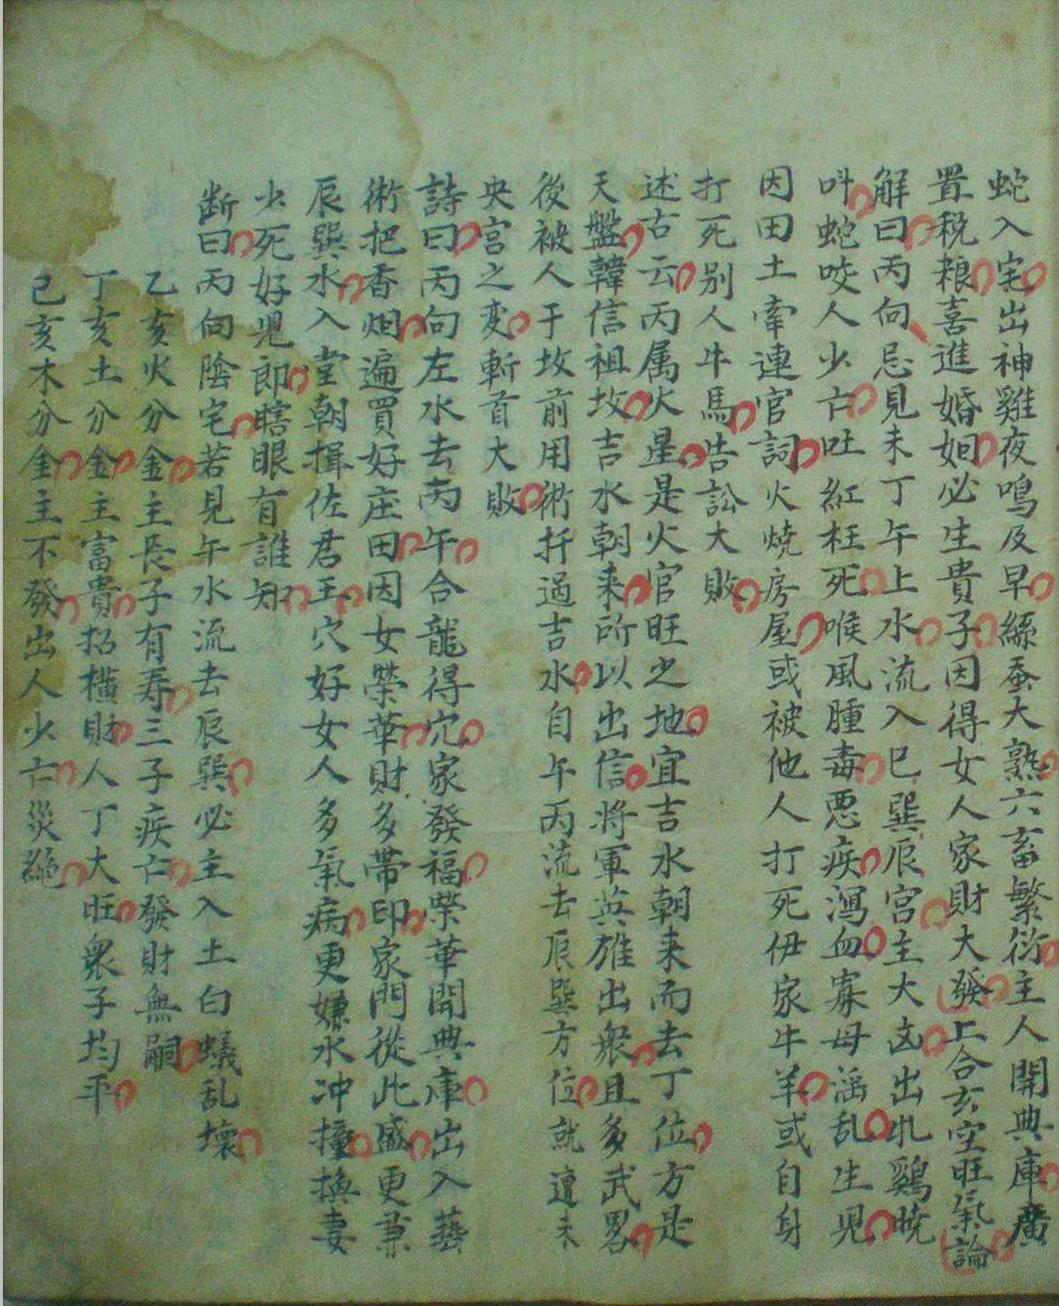 蛇入宅出神雞夜鳴及早絲蚕大熟六畜繁衍主人開典庫廣
置税粮喜進婚姻必生貴子因得女人家財大發上合玄空旺氣論
解曰丙向忌見未丁午上水流入巳巽辰宮主大凶出牝鷄曉
呌蛇咬人少亡吐紅枉死喉風腫毒悪疾瀉血寡母滛乱生児
因田土牽連官詞火燒房屋或被他人打死伊家牛羊或自身
打死别人牛馬告訟大敗
述古云丙属火星是火官旺之地宜吉水朝来而去丁位方是
天盤韓信祖坟吉水朝来所以出信將軍英雄出衆且多武畧
後被人于坟前用術扦過吉水自午丙流去辰巽方位就遭未
央宮之变斬首大敗
詩曰丙向左水去丙午合龍得穴家發福榮華開典庫出入藝
術把香烟遍買好庄田因女榮華財多帶印家門從此盛更兼
辰巽水入堂朝揖佐君王穴好女人多氣病更嫌水冲撞換妻
少死好児郎瞎眼有誰知
断曰丙向陰宅若見午水流去辰巽必主入土白蟻乱壞
乙亥火分金主長子有寿三子疾亡發財無嗣
丁亥土分金主富貴招橫財人丁大旺衆子均平
己亥木分金主不發出人少亡災絕